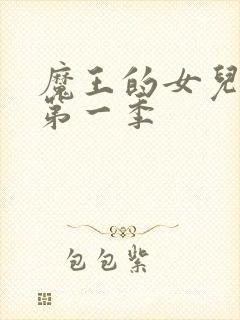 魔王的女兒
第一季
包包紫